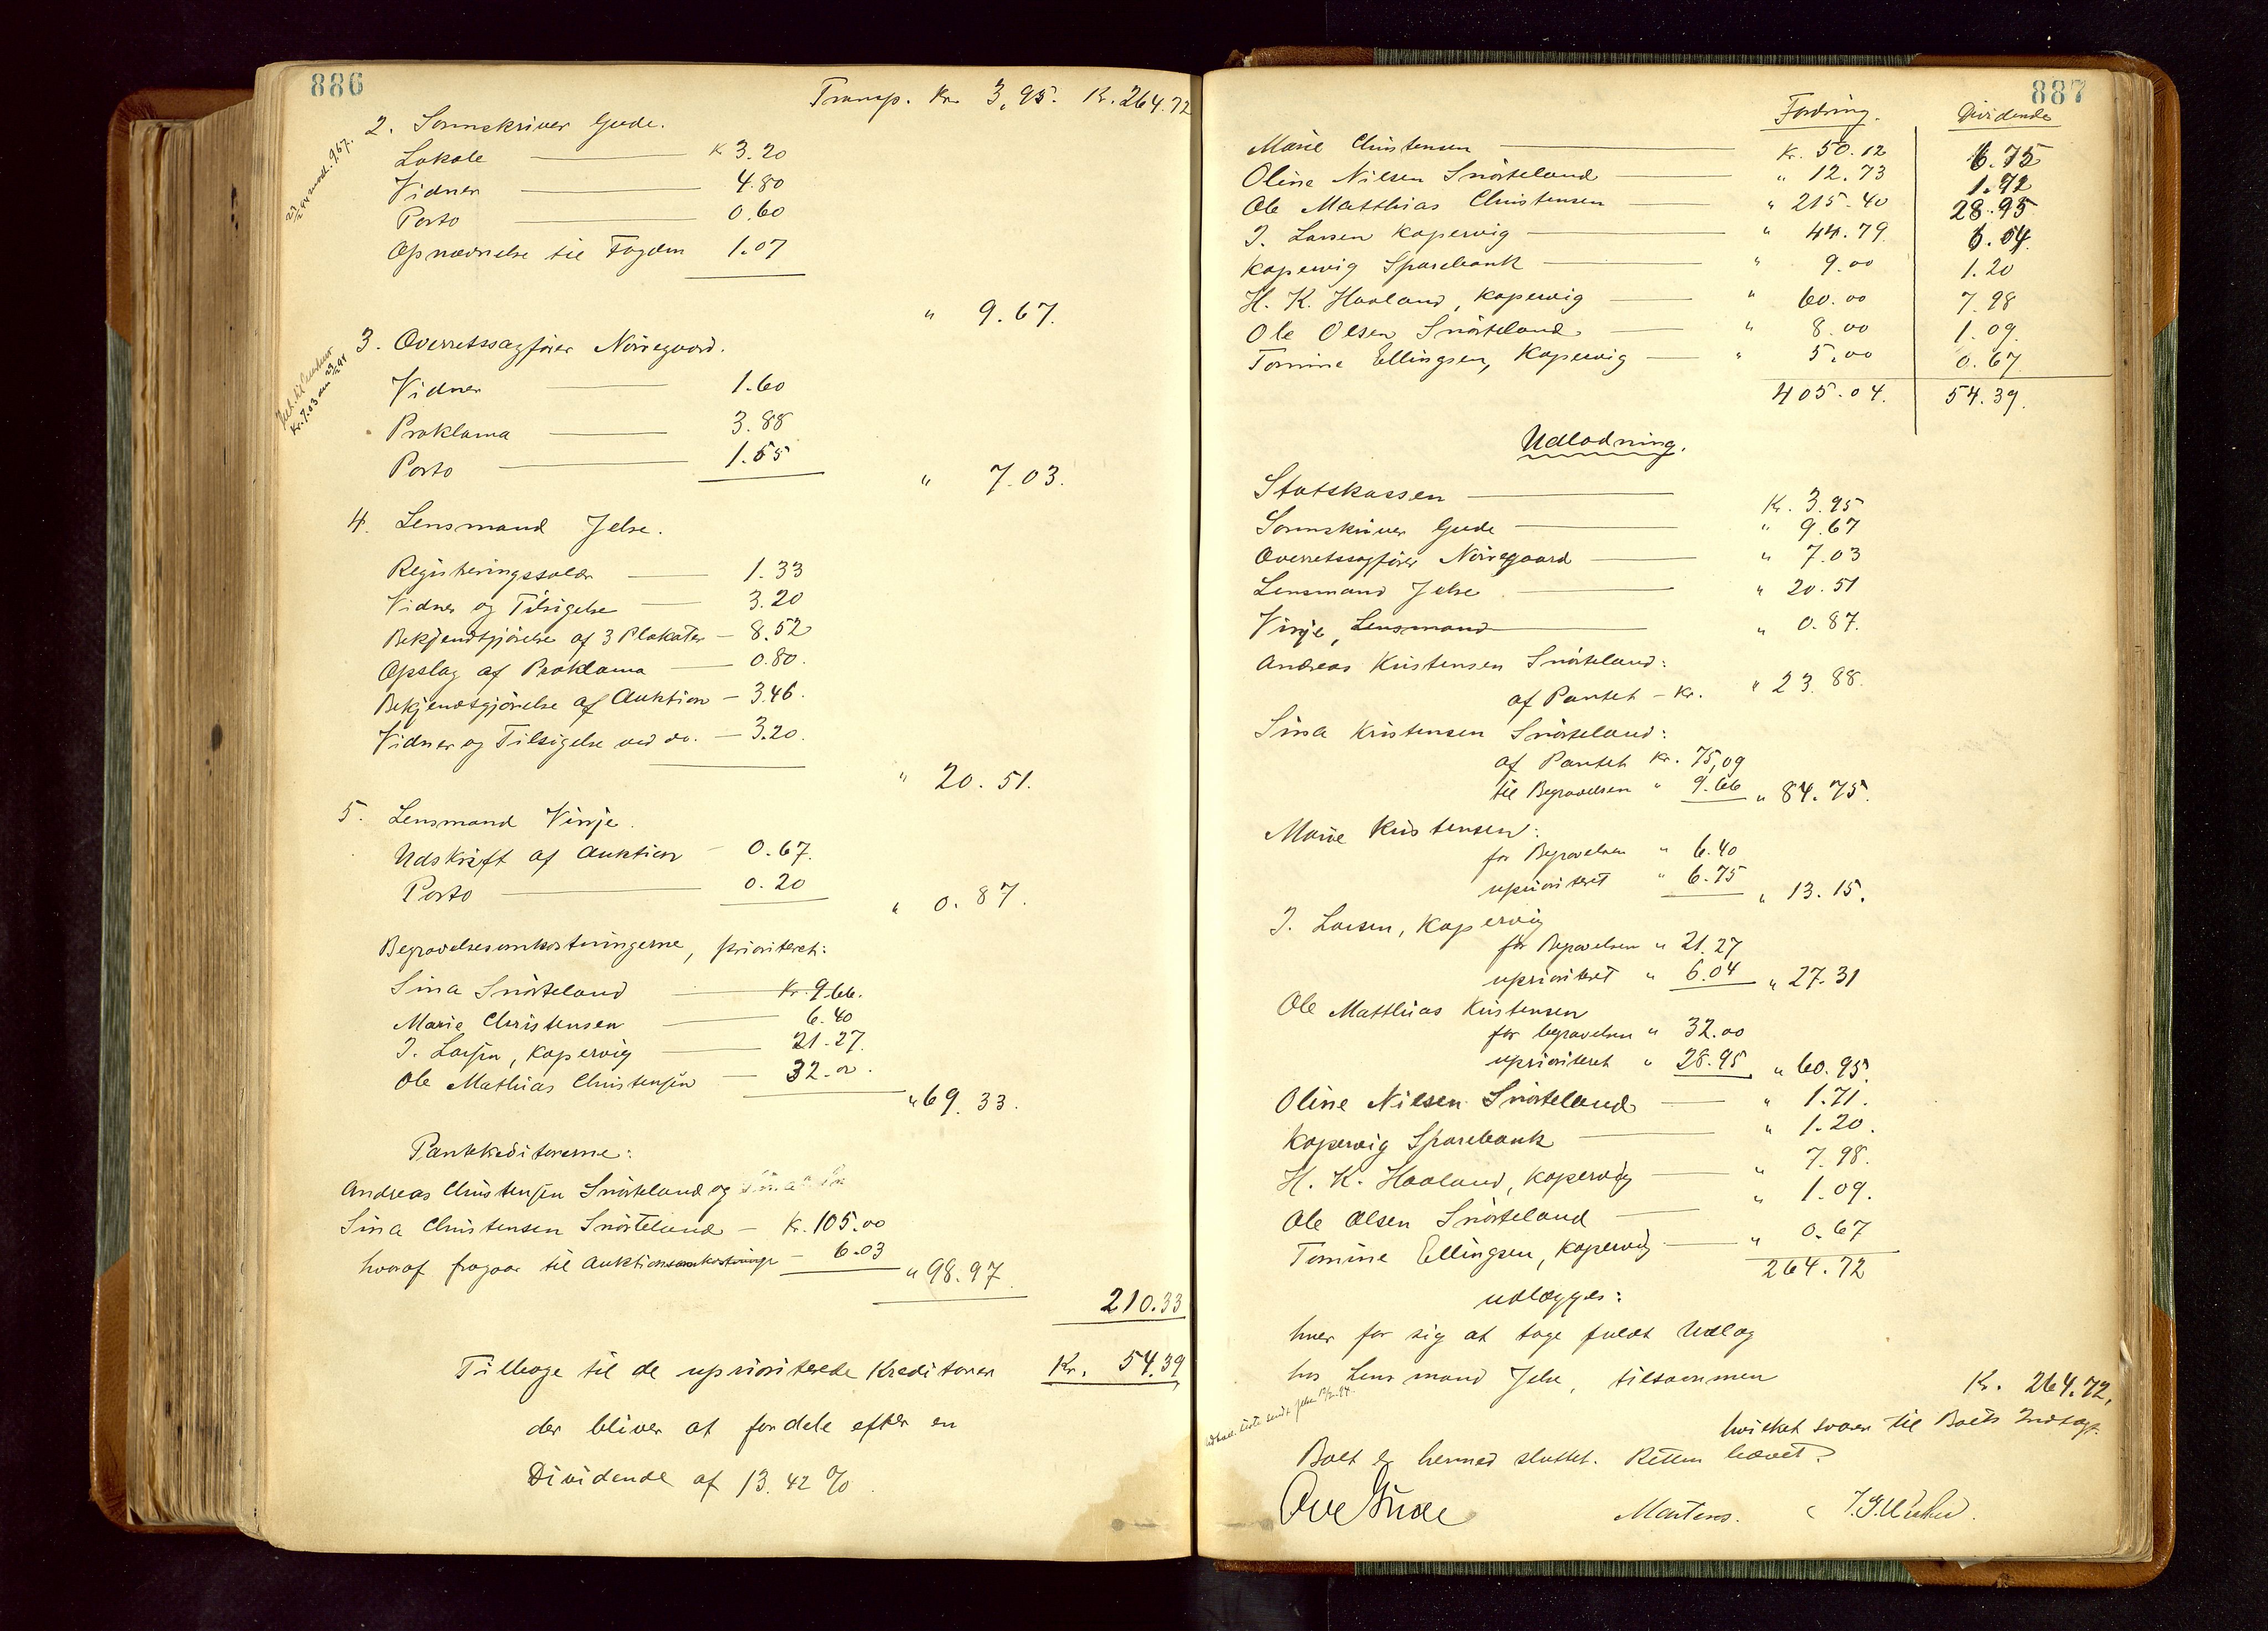 886
Transp. Kr. 3,95. Kr. 264.72
2. Sorenskriver Gude.
Lokale Kr 3.20
Vidner 4.80
Porto 0.60
Opnævnelse til Fogden 1.07
" 9.67.
3. Overretssagfører Nörregaard.
Vidner 1.60
Proklama 3.88
Porto 1.55
" 7.03.
Kr. 7.03 den
4. Lensmand Jelse.
Registreringssalær 1.33
Vidner og Tilsigelse 3.20
Bekjendtgjörelse af 3 Plakater – 8.52
Opslag af Proklama 0.80.
Bekjendtgjörelse af Auktion – 3.46.
Vidner og Tilsigelse ved do. – 3.20.
" 20.51.
5. Lensmand Vinje.
Udskrift af Auktion – 0.67.
Porto 0.20
" 0.87.
Begravelsesomkostningerne, prioriteret:
Sina Snörteland Kr. 9.66.
Marie Christensen 6.40
J. Larsen, Kopervig 21.27.
Ole Mathias Christensen – 32.00.
" 69.33.
Pantekreditorerne:
Andreas Christensen Snörteland og
Sina Christensen Snörteland – Kr. 105.00
hvoraf fragaar til Auktionsomkostninger – 6.03
" 98.97
210.33
Tilbage til de uprioriterede Kreditorer Kr. 54.39
der bliver at fordele efter en
Dividende af 13.42 %.
887
Fordring. Dividende
Marie Christensen Kr. 50.12 6.75
Oline Nilsen Snörteland " 12.73 1.72
Ole Matthias Christensen " 215.40 28.95
J. Larsen Kopervig " 44.79 6.04
Kopervig Sparebank " 9.00 1.20
H. K. Haaland, Kopervig " 60.00 7.98
Ole Olsen Snörteland " 8.00 1.09.
Tomine Ellingsen, Kopervig – " 5.00 0.67.
405.04. 54.39.
Udlodning.
Statskassen Kr. 3.95
Sorenskriver Gude " 9.67
Overretssagfører Nörregaard " 7.03
Lensmand Jelse " 20.51
Vinje, Lensmand " 0.87.
Andreas Kristensen Snörteland:
af Pantet – Kr. " 23.88.
Sina Kristensen Snörteland:
af Pantet Kr. 75,09
til Begravelsen " 9.66 " 84.75.
Marie Kristensen:
for Begravelsen " 6.40
uprioriteret " 6.75 " 13.15.
J. Larsen, Kopervig
for Begravelsen " 21.27
uprioriteret " 6.04 " 27.31
Ole Matthias Kristensen
for begravelsen " 32.00
uprioriteret " 28.95 " 60.95.
Oline Nilsen Snörteland " 1.71.
Kopervig Sparebank " 1.20.
H. K. Haaland, Kopervig " 7.98.
Ole Olsen Snörteland " 1.09.
Tomine Ellingsen, Kopervig " 0.67
264.72
udlægges:
hver for sig at tage fuldt Udlæg
hos Lensmand Jelse, tilsammen Kr. 264.72,
hvilket svarer til Boets Indtægt.
Boet er hermed sluttet. Retten hævet.
Ove Gude Mortens.